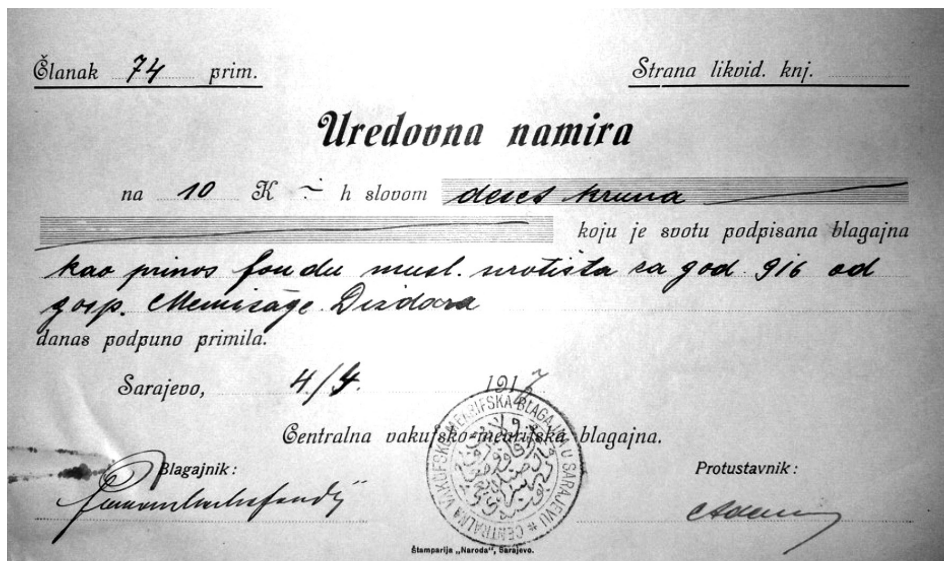 Članak 74 prim.
Strana likvid. knj.
Uredovna namira
na 10 K ÷ h slovom deset kruna
koju je svotu podpisana blagajna
kao prinos fondu musl. sirotišta za god. 916 od
gosp. Memišage Dizdara
danas podpuno primila.
Sarajevo, 4/4. 1917
Centralna vakufsko-mearifska blagajna.
Blagajnik:
Protustavnik:
CENTRALNA VAKUFSKO-MEARIFSKA BLAGAJNA U SARAJEVU
Štamparija „Naroda", Sarajevo.